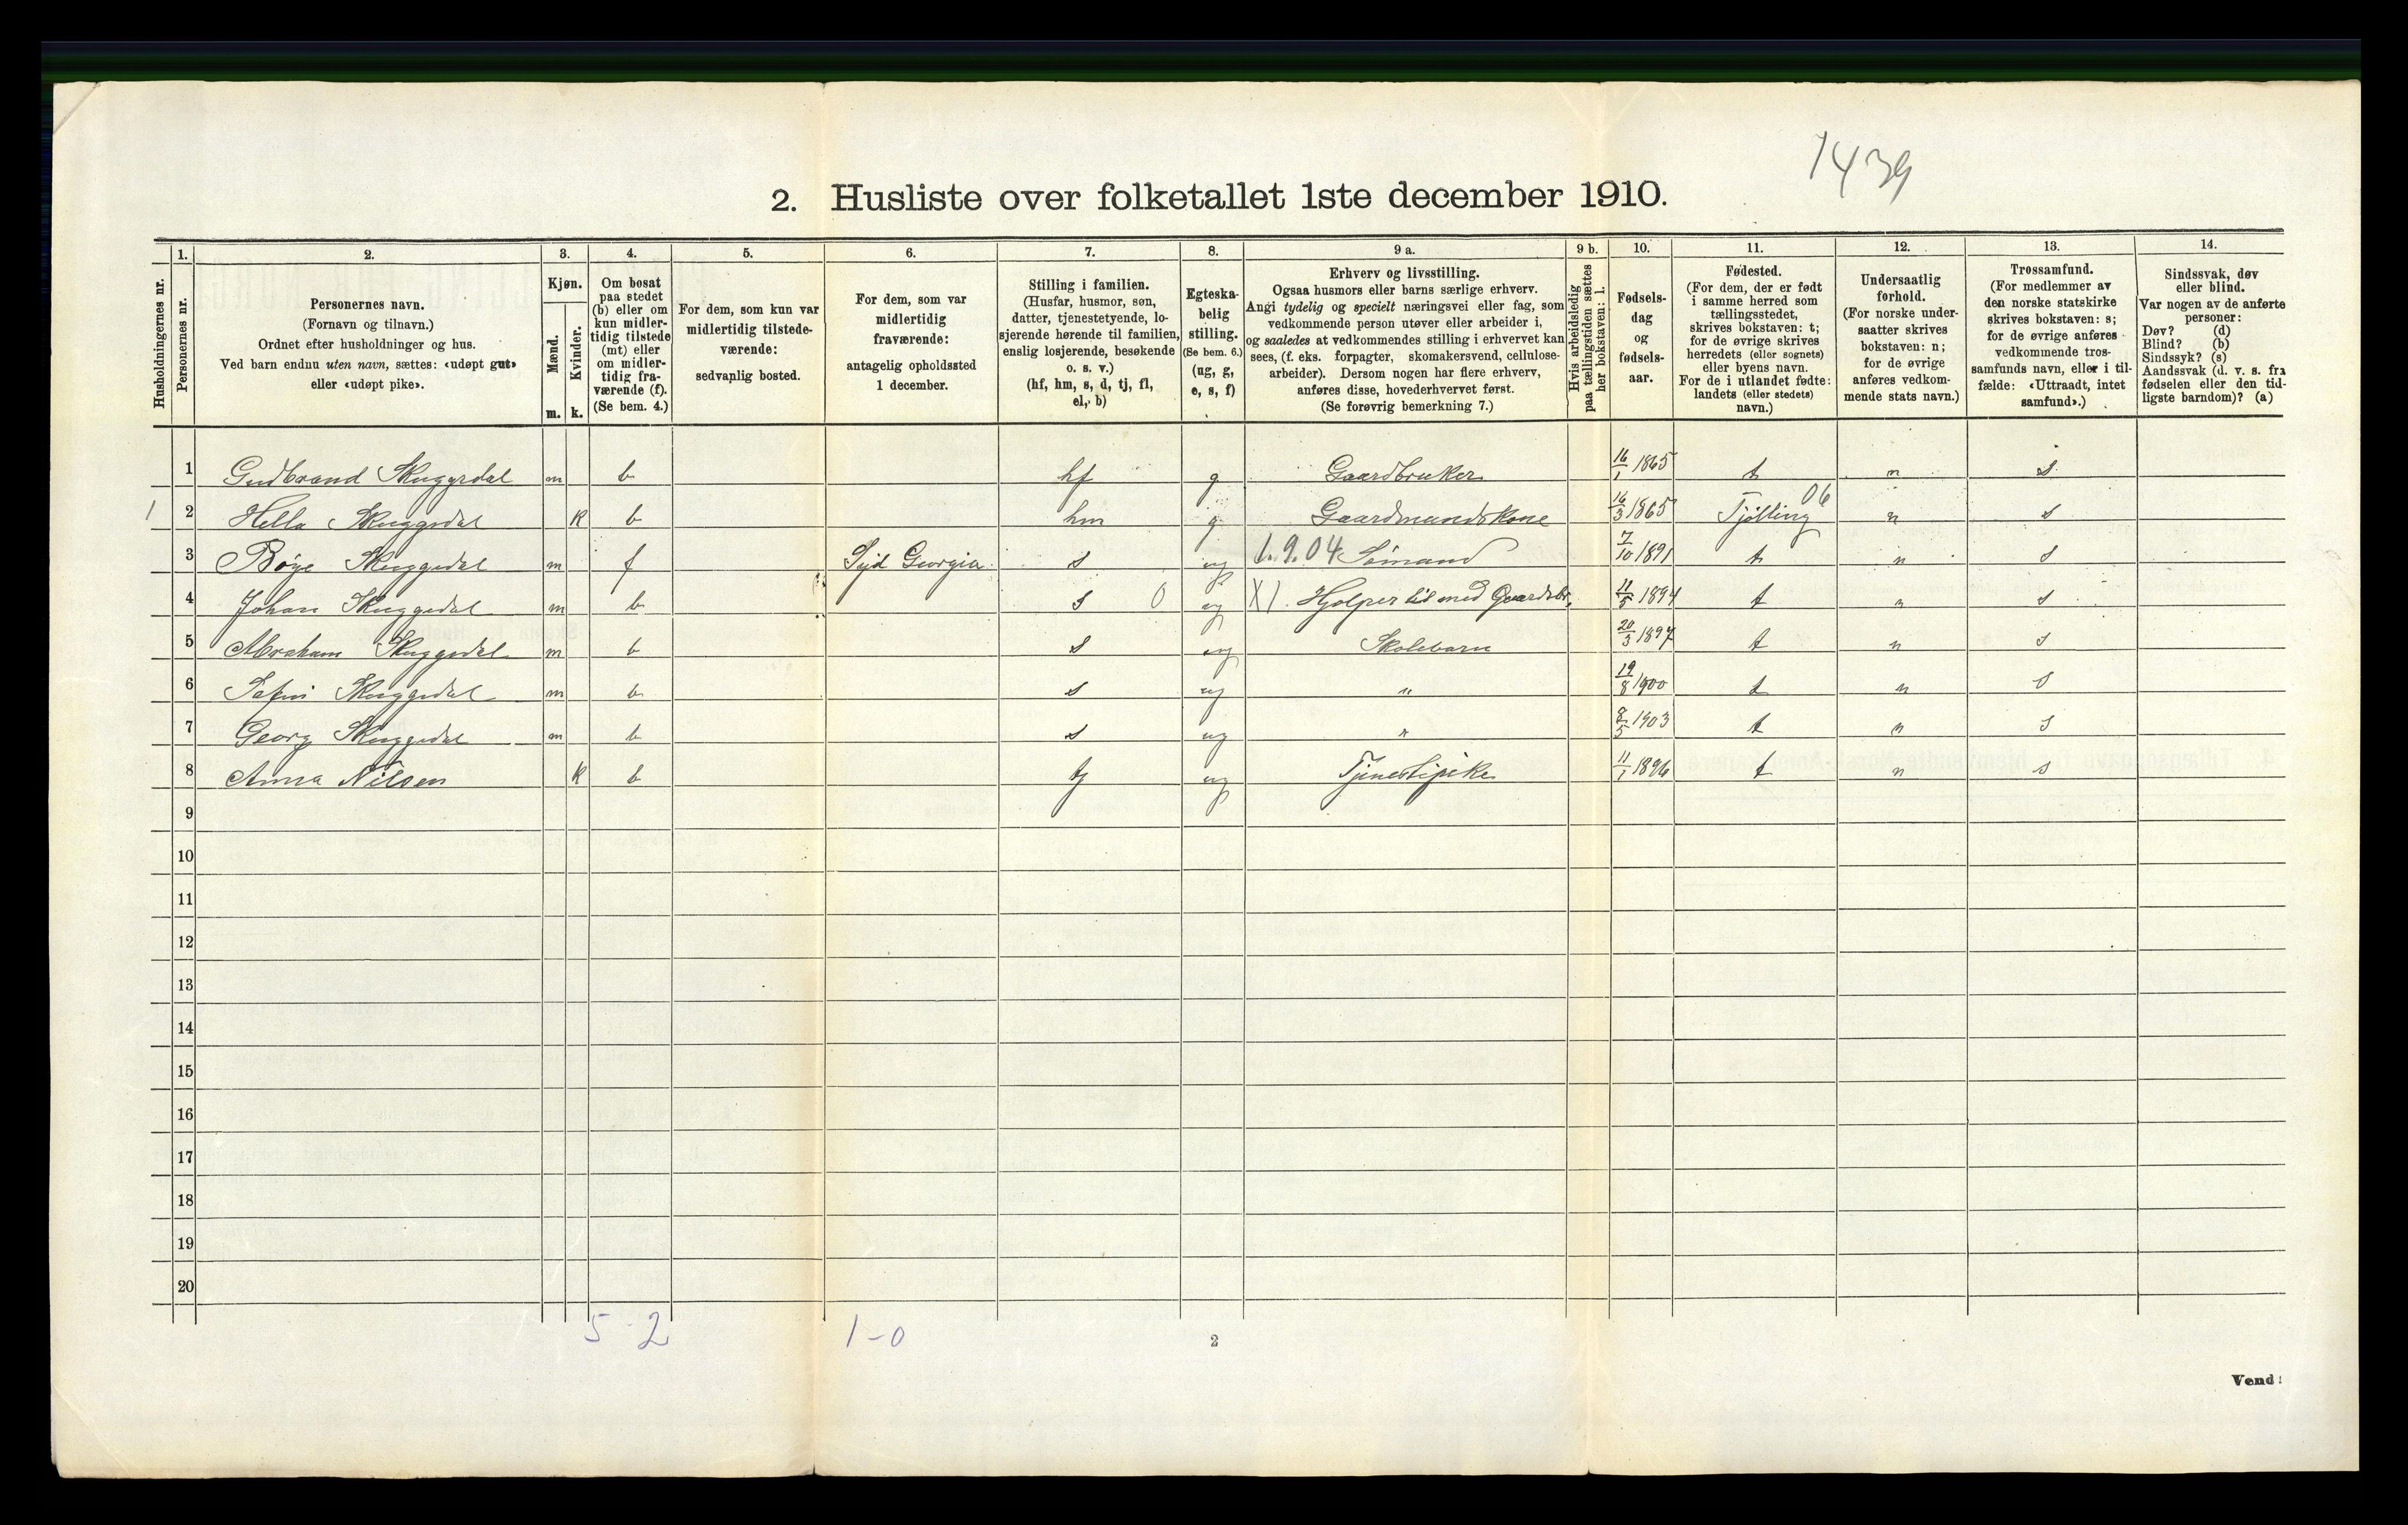 1439
2. Husliste over folketallet 1ste december 1910.
Husholdningernes nr.
1.
Personernes nr.
2.
Personernes navn.
(Fornavn og tilnavn.)
Ordnet efter husholdninger og hus.
Ved barn endnu uten navn, sættes: «udøpt gut»
eller «udøpt pike».
3.
Kjøn.
Mænd.
m.
Kvinder.
k.
4.
Om bosat
paa stedet
(b) eller om
kun midler-
tidig tilstede
(mt) eller
om midler-
tidig fra-
værende (f).
(Se bem. 4.)
5.
For dem, som kun var
midlertidig tilstede-
værende:
sedvaplig bosted.
6.
For dem, som var
midlertidig
fraværende:
antagelig opholdssted
1 december.
7.
Stilling i familien.
(Husfar, husmor, søn,
datter, tjenestetyende, lo-
sjerende hørende til familien,
enslig losjerende, besøkende
o. s. v.)
(hf, hm, s, d, tj, fl,
el, b)
8.
Egteska-
belig
stilling.
(Se bem. 6.)
(ug, g,
e, s, f)
9 a.
Erhverv og livsstilling.
Ogsaa husmors eller barns særlige erhverv.
Angi tydelig og specielt næringsvei eller fag, som
vedkommende person utøver eller arbeider i,
og saaledes at vedkommendes stilling i erhvervet kan
sees, (f. eks. forpagter, skomakersvend, cellulose-
arbeider). Dersom nogen har flere erhverv,
anføres disse, hovederhvervet først.
(Se forøvrig bemerkning 7.)
9 b.
Hvis arbeidsledig
paa tællingstiden sættes
her bokstaven: l.
10.
Fødsels-
dag
og
fødsels-
aar.
11.
Fødested.
(For dem, der er født
i samme herred som
tællingsstedet,
skrives bokstaven: t;
for de øvrige skrives
herredets (eller sognets)
eller byens navn.
For de i utlandet fødte:
landets (eller stedets)
navn.)
12.
Undersaatlig
forhold.
(For norske under-
saatter skrives
bokstaven: n;
for de øvrige
anføres vedkom-
mende stats navn.)
13.
Trossamfund.
(For medlemmer av
den norske statskirke
skrives bokstaven: s;
for de øvrige anføres
vedkommende tros-
samfunds navn, eller i til-
fælde: «Uttraadt, intet
samfund».)
14.
Sindssvak, døv
eller blind.
Var nogen av de anførte
personer:
Døv? (d)
Blind? (b)
Sindssyk? (s)
Aandssvak (d. v. s. fra
fødselen eller den tid-
ligste barndom)? (a)
1 Gudbrand Skuggedal m b hf g Gaardbruker 16/1 1865 t n s
1 2 Hella Skuggedal k b hm g Gaardmandskone 16/3 1865 Tjølling 06 n s
3 Böye Skuggedal m f Syd Georgia s ug 1.9.04 Sømand 7/10 1891 t n s
4 Johan Skuggedal m b s 0 ug X1. Hjelper til med Gaardsbr. 11/5 1894 t n s
5 Abraham Skuggedal m b s ug Skolebarn 20/3 1897 t n s
6 Skuggedal m b s ug " 19/8 1900 t n s
7 Georg Skuggedal m b s ug " 8/5 1903 t n s
8 Anna Nilsen k b tj ug Tjenestepike 11/1 1896 t n s
9
10
11
12
13
14
15
16
17
18
19
20
5-2 1-0
2
Vend!